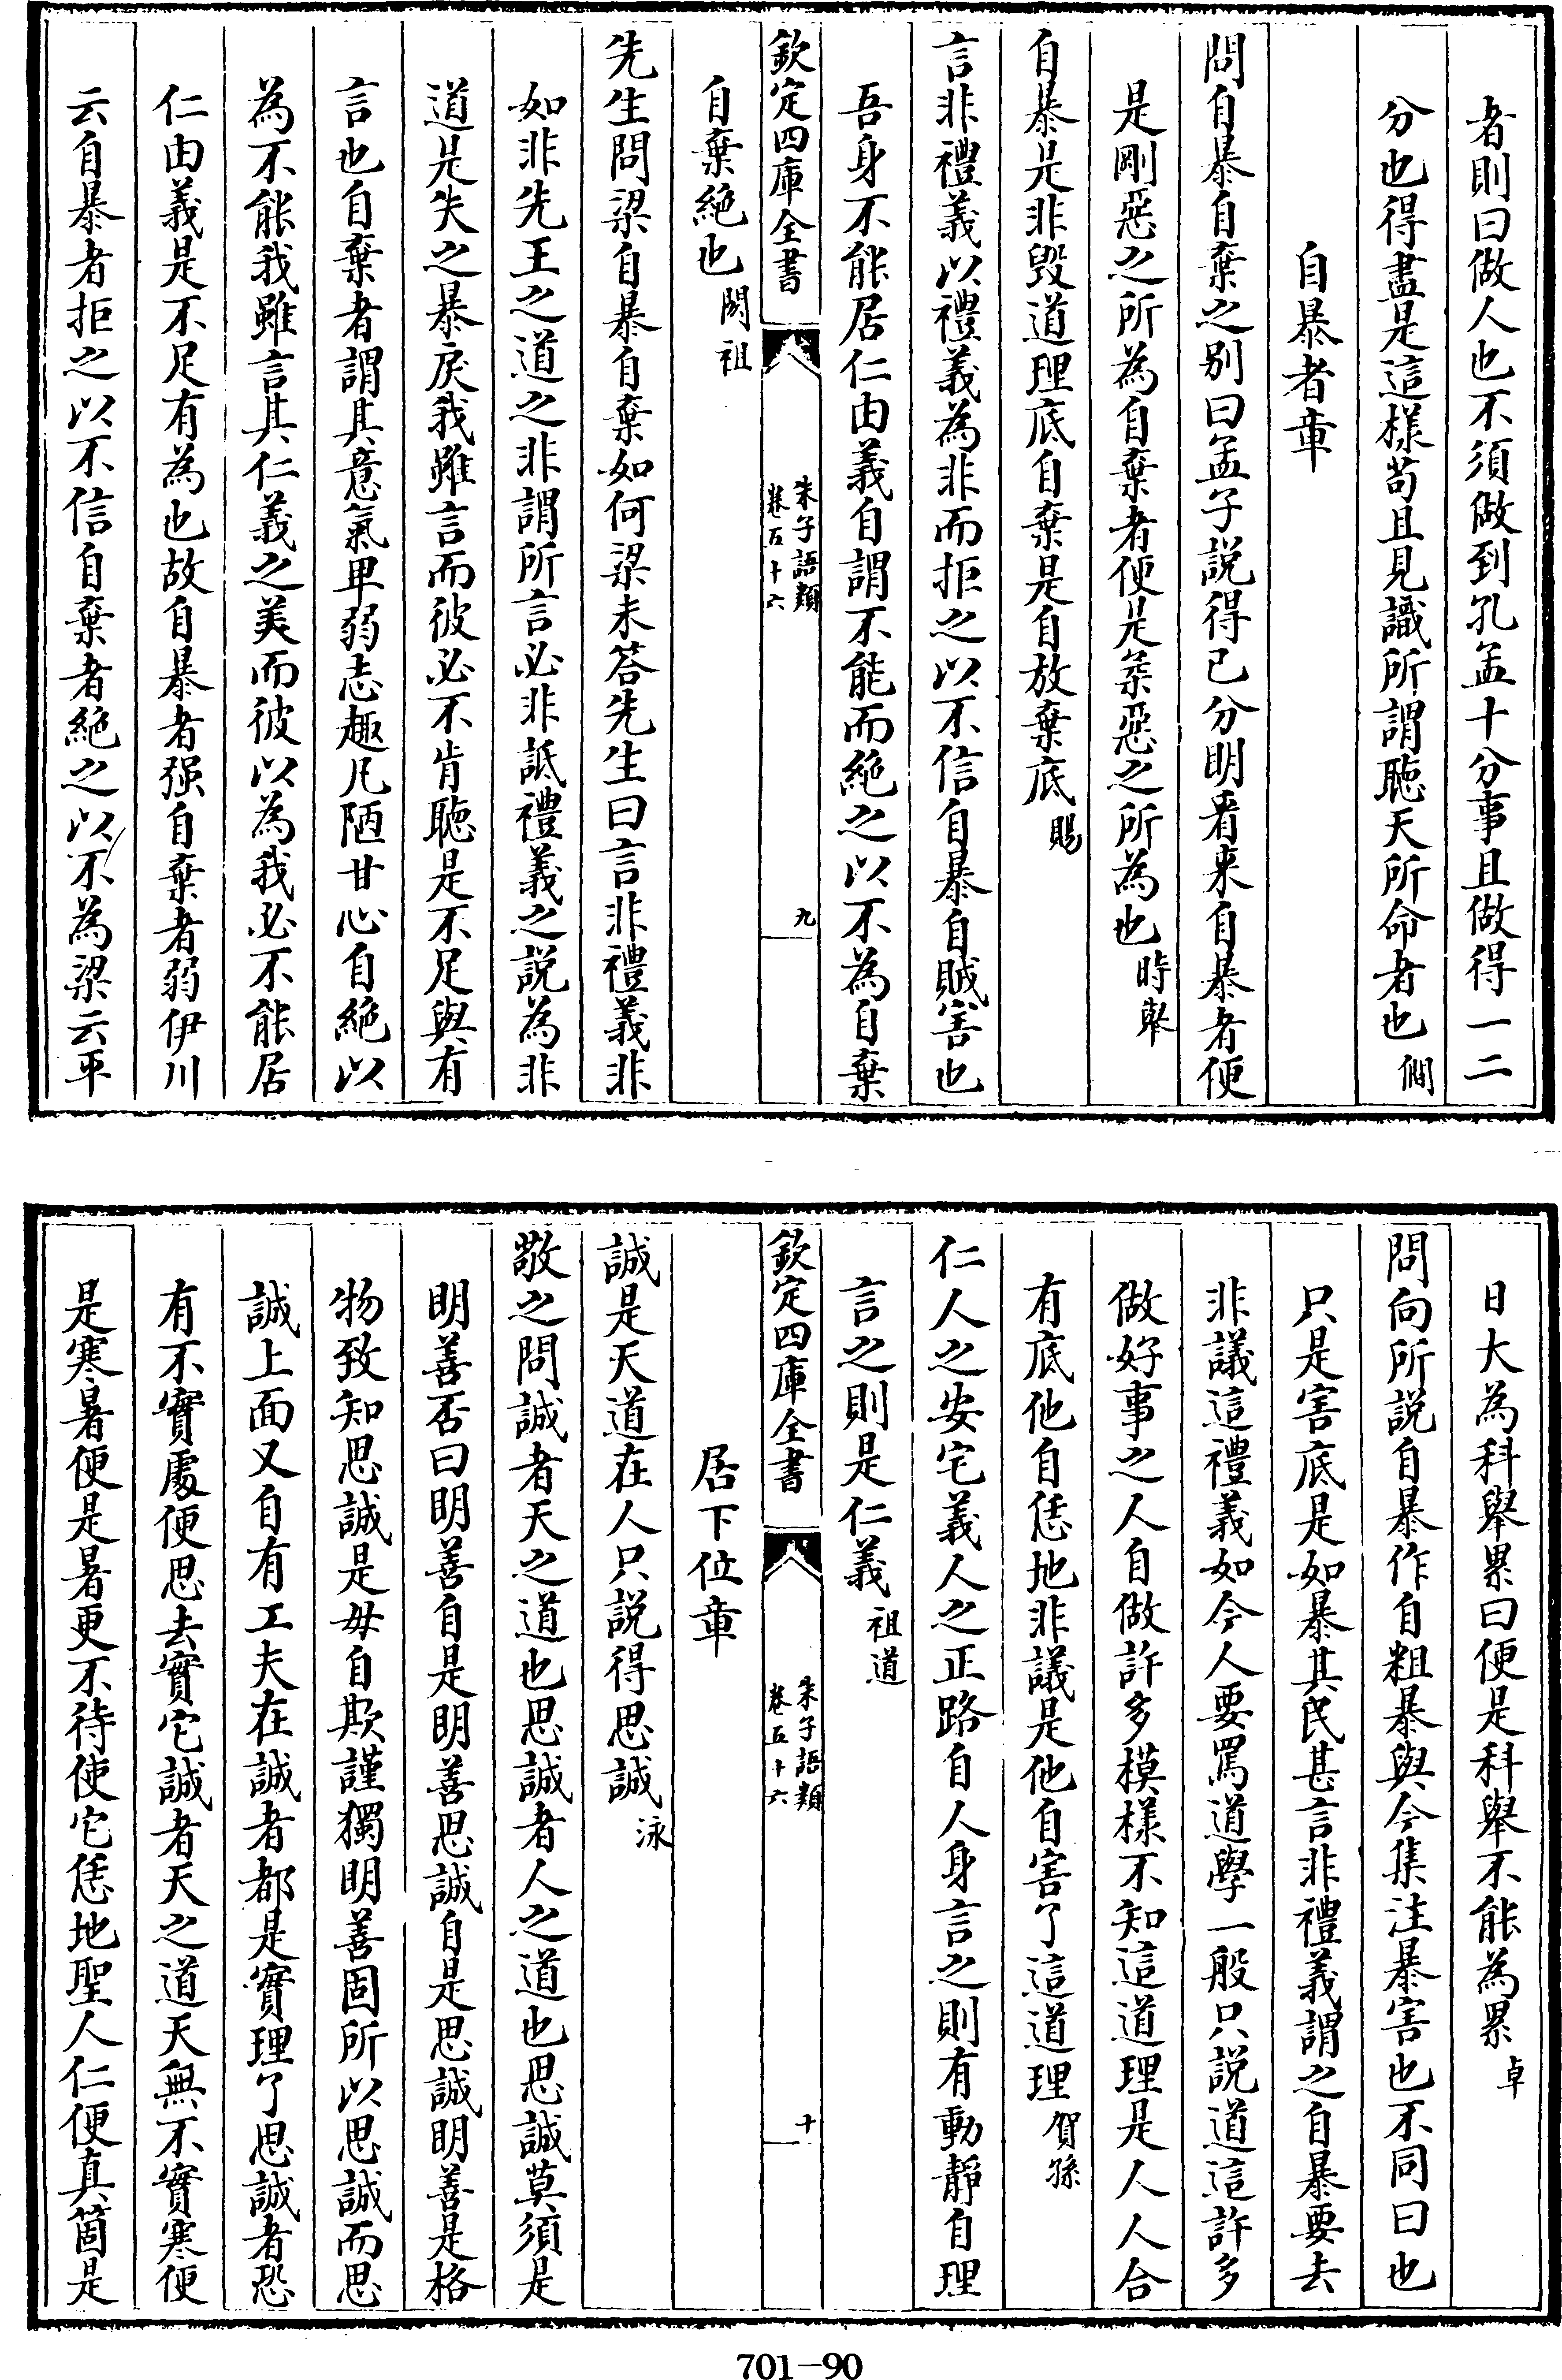 者則曰做人也不須做到孔孟十分事且做得一二
分也得盡是這樣苟且見識所謂聴天所命者也僩
自暴者章
問自暴自棄之别曰孟子説得已分明看来自暴者便
是剛惡之所為自棄者便是柔惡之所為也時舉
自暴是非毁道理底自棄是自放棄底賜
言非禮義以禮義為非而拒之以不信自暴自賊害也
吾身不能居仁由義自謂不能而絶之以不為自棄
欽定四庫全書
朱子語類
卷五十六
九
自棄絶也閎祖
先生問梁自暴自棄如何梁未答先生曰言非禮義非
如非先王之道之非謂所言必非詆禮義之説為非
道是失之暴戾我雖言而彼必不肯聴是不足與有
言也自棄者謂其意氣卑弱志趣凡陋甘心自絶以
為不能我雖言其仁義之美而彼以為我必不能居
仁由義是不足有為也故自暴者强自棄者弱伊川
云自暴者拒之以不信自棄者絶之以不為梁云平
日大為科舉累曰便是科舉不能為累卓
問向所説自暴作自粗暴與今集注暴害也不同曰也
只是害底是如暴其民甚言非禮義謂之自暴要去
非議這禮義如今人要罵道學一般只説道這許多
做好事之人自做許多模樣不知這道理是人人合
有底他自恁地非議是他自害了這道理賀孫
仁人之安宅義人之正路自人身言之則有動靜自理
言之則是仁義祖道
欽定四庫全書
朱子語類
卷五十六
十
居下位章
誠是天道在人只説得思誠泳
敬之問誠者天之道也思誠者人之道也思誠莫須是
明善否曰明善自是明善思誠自是思誠明善是格
物致知思誠是毋自欺謹獨明善固所以思誠而思
誠上面又自有工夫在誠者都是實理了思誠者恐
有不實處便思去實它誠者天之道天無不實寒便
是寒暑便是暑更不待使它恁地聖人仁便真箇是
701-90